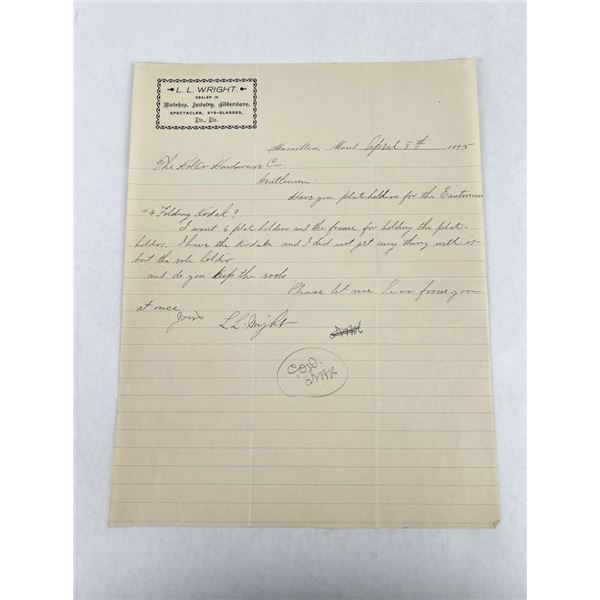 L. L. WRIGHT.
DEALER IN
Watches, Jewelry, Silverware,
SPECTACLES, EYE-GLASSES,
Etc., Etc.
Hamilton, Mont April 8th 1895
The Holter Hardware Co.
Gentlemen:
Have you plate holders for the Eastman
#4 Folding Kodak?
I want 6 plate holders and the frame for holding the plate-
holders. I have the Kodake and I did not get any thing with it
but the role holder
and do you keep the rools
Please let me hear from you
at once
Yours L L Wright